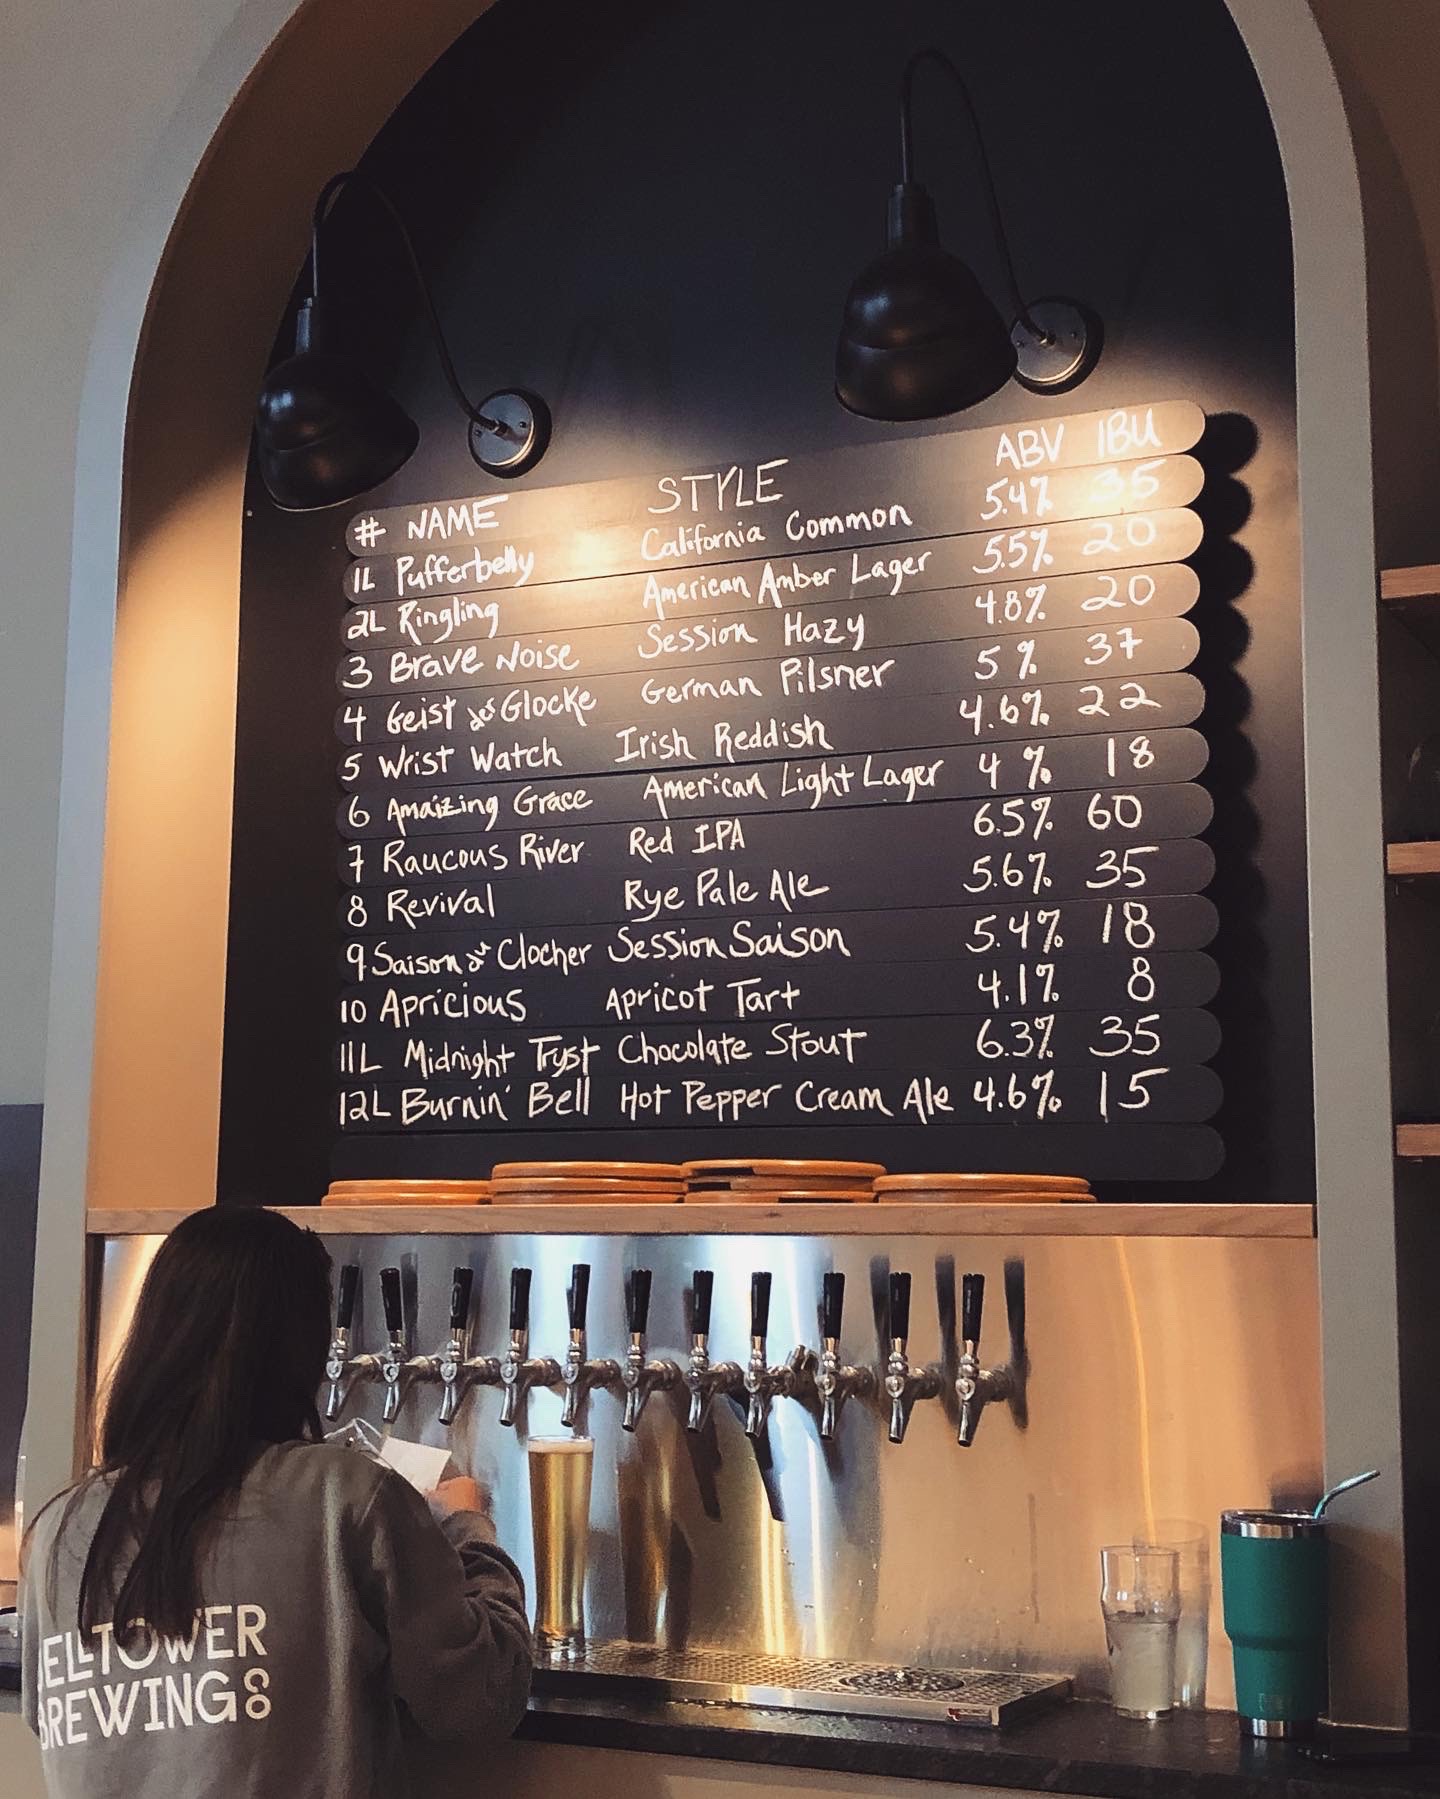 # NAME STYLE ABV IBU
1L Pufferbelly California Common 5.4% 35
2L Ringling American Amber Lager 5.5% 20
3 Brave Noise Session Hazy 4.8% 20
4 Geist der Glocke German Pilsner 5% 37
5 Wrist Watch Irish Reddish 4.6% 22
6 Amaizing Grace American Light Lager 4% 18
7 Raucous River Red IPA 6.5% 60
8 Revival Rye Pale Ale 5.6% 35
9 Saison Clocher Session Saison 5.4% 18
10 Apricious Apricot Tart 4.1% 8
11L Midnight Tryst Chocolate Stout 6.3% 35
12L Burnin' Bell Hot Pepper Cream Ale 4.6% 15
ELLTOWER
BREWING CO